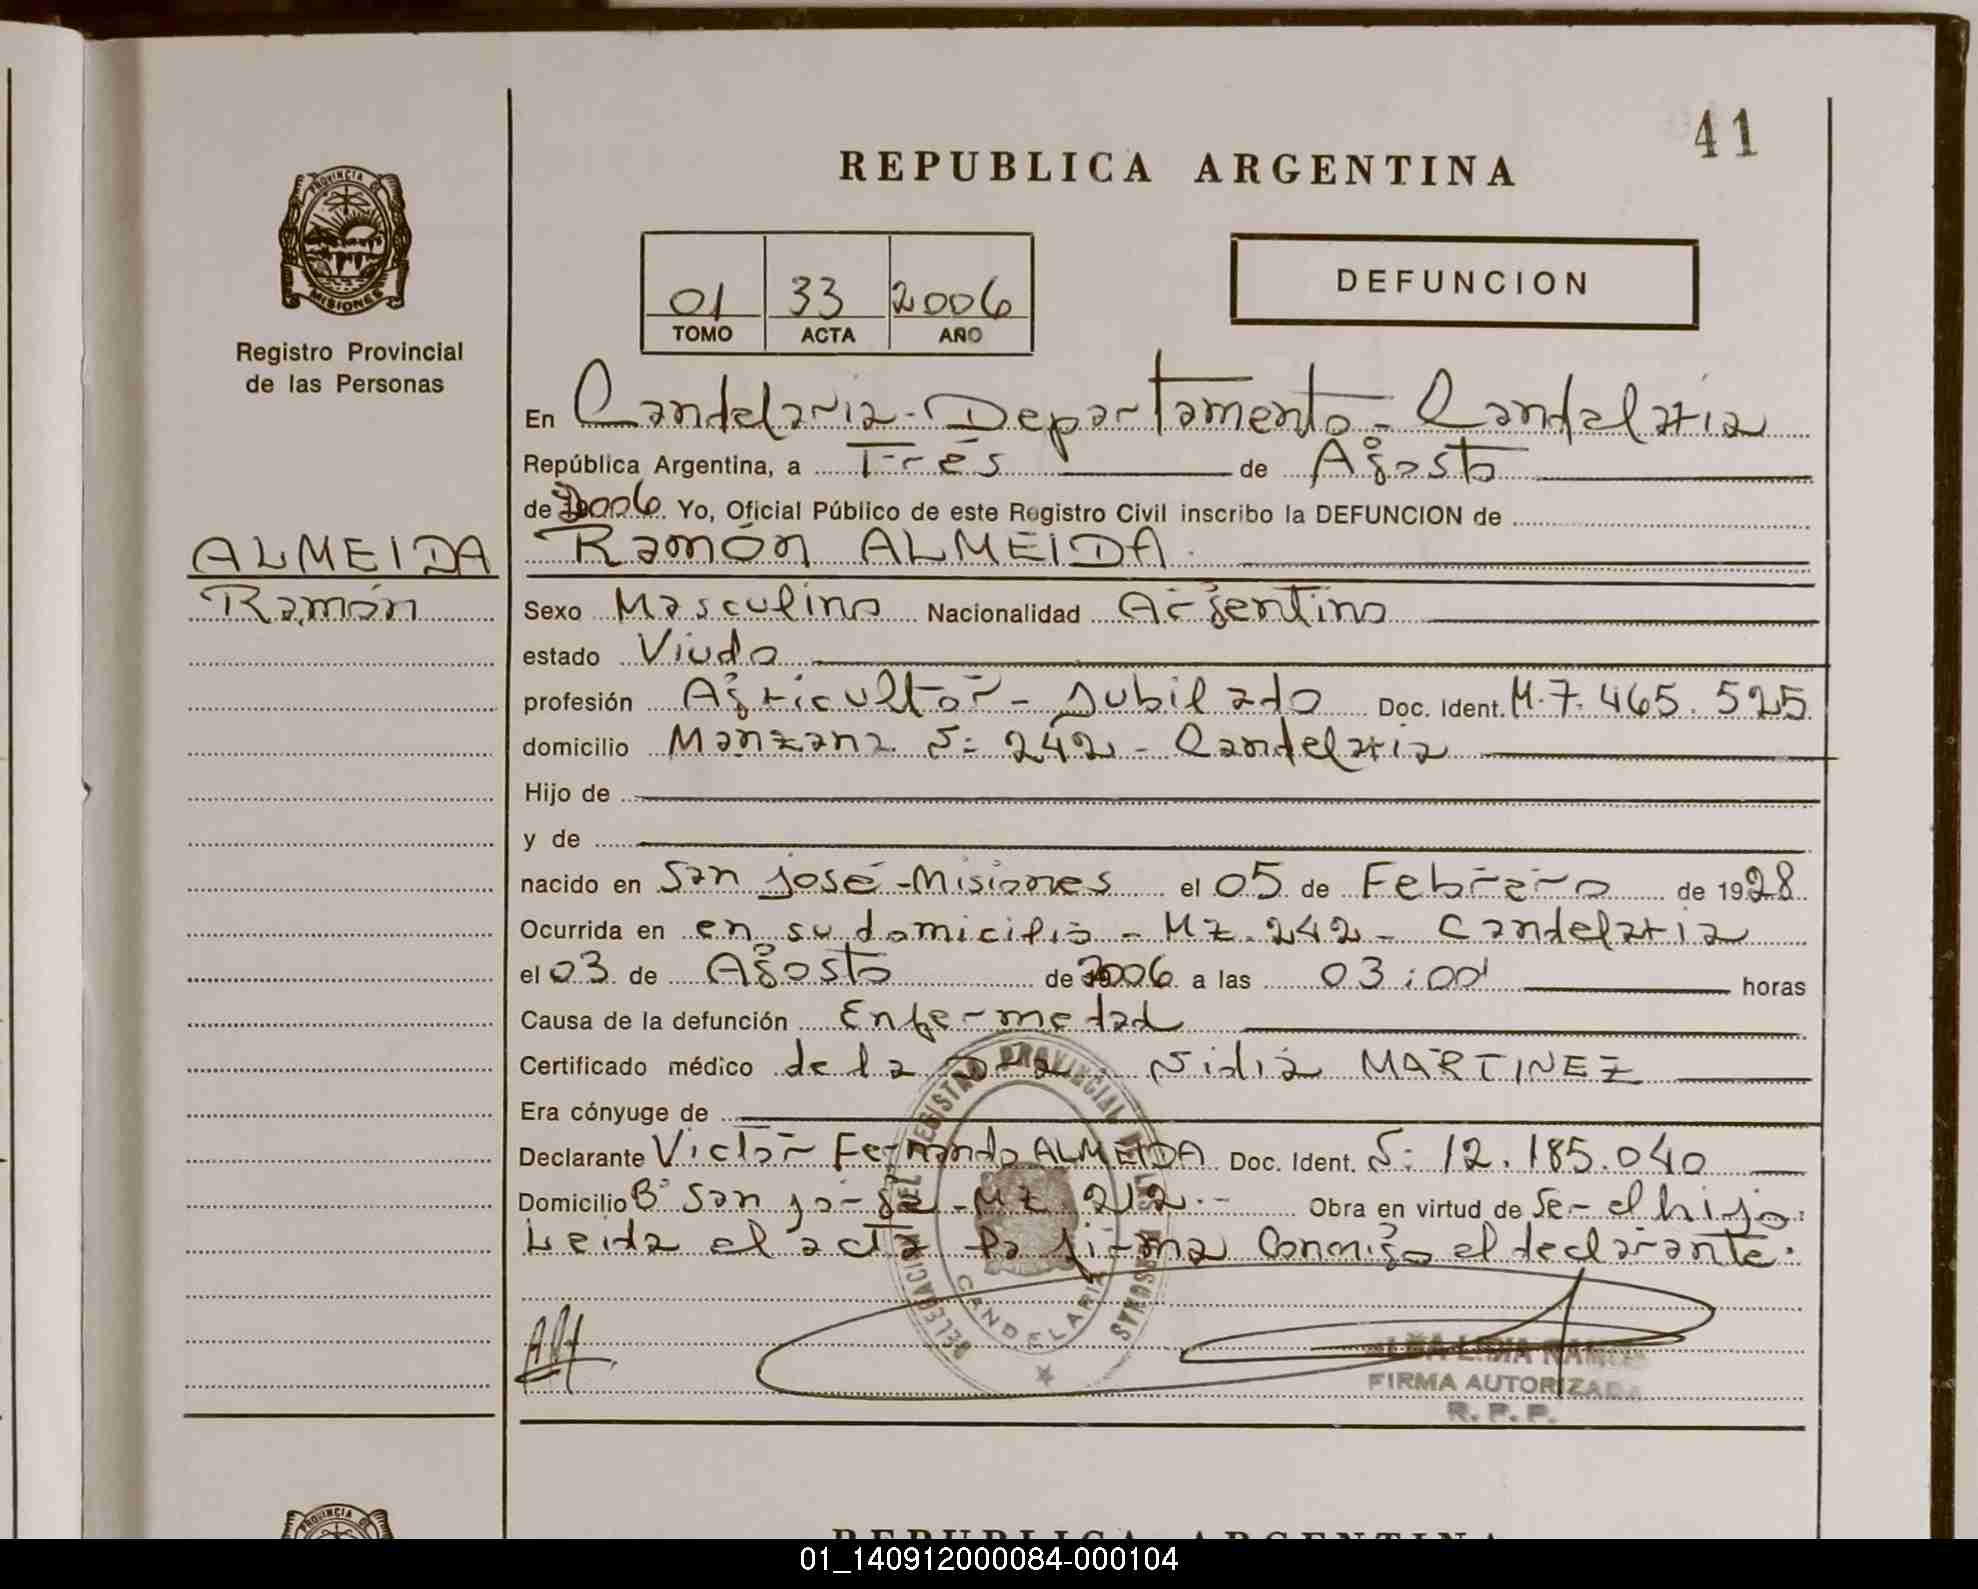 41
REPUBLICA ARGENTINA
PROVINCIA DE
MISIONES
Registro Provincial
de las Personas
01 33 2006
TOMO ACTA AÑO
DEFUNCION
ALMEIDA
Ramón
En Candelaria - Departamento - Candelaria
República Argentina, a Tres de Agosto
de 2006 Yo, Oficial Público de este Registro Civil inscribo la DEFUNCION de
Ramón ALMEIDA.
Sexo Masculino Nacionalidad Argentino
estado Viudo
profesión Agricultor - Jubilado Doc. Ident. M. 7.465.525
domicilio Manzana S: 242 - Candelaria
Hijo de
y de
nacido en San José - Misiones el 05 de Febrero de 1928
Ocurrida en en su domicilio - Mz. 242 - Candelaria
el 03 de Agosto de 2006 a las 03:00' horas
Causa de la defunción Enfermedad
Certificado médico de la Dra. Nidia MARTINEZ
Era cónyuge de
Declarante Victor Fernando ALMEIDA Doc. Ident. S: 12.185.040
Domicilio Bº San Jorge - Mz. 212.- Obra en virtud de Ser el hijo.
Leida el acta la firma Conmigo el declarante.
DELEGACION DEL REGISTRO PROVINCIAL DE LAS PERSONAS
CANDELARIA
ALBA LIDIA
FIRMA AUTORIZADA
R. P. P.
PROVINCIA DE
REPUBLICA ARGENTINA
01_140912000084-000104